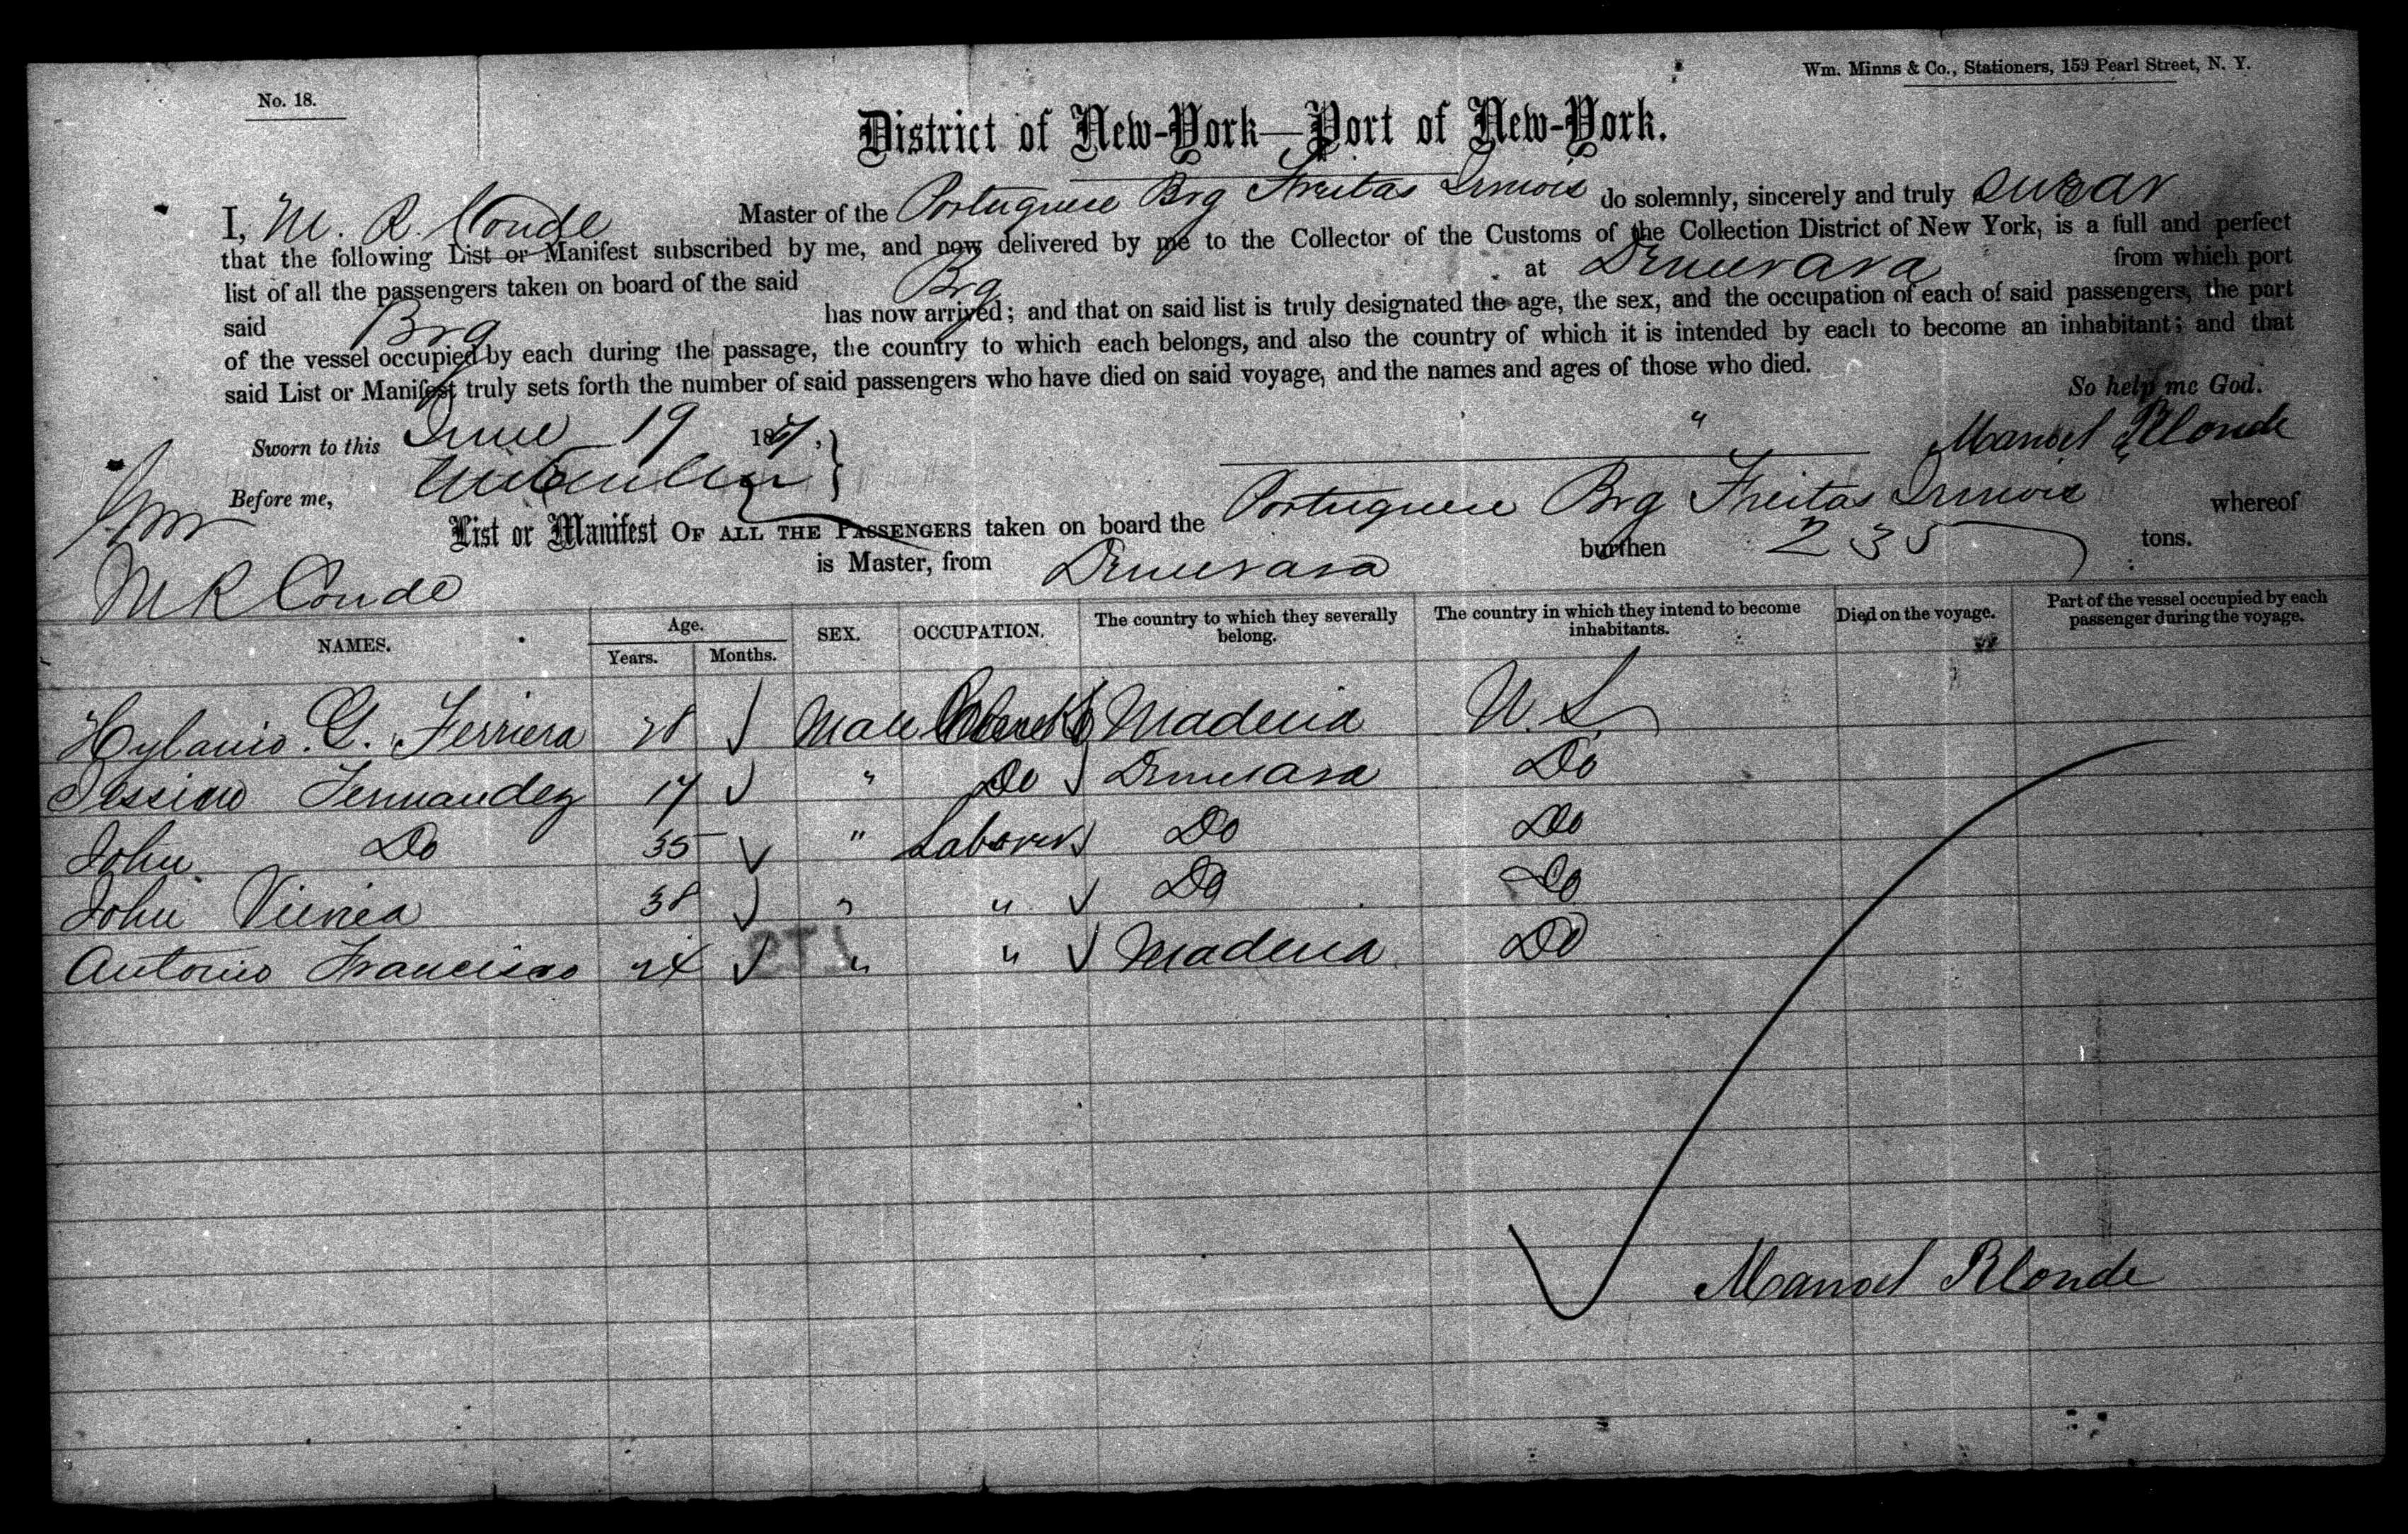 Wm. Minns & Co., Stationers, 159 Pearl Street, N. Y.
No. 18.
District of New-York—Port of New-York.
I, M. R. Conde Master of the Portuguese Brg Freitas Irmois do solemnly, sincerely and truly swear
that the following List or Manifest subscribed by me, and now delivered by me to the Collector of the Customs of the Collection District of New York, is a full and perfect
list of all the passengers taken on board of the said Brg at Demerara from which port
said Brg has now arrived; and that on said list is truly designated the age, the sex, and the occupation of each of said passengers, the part
of the vessel occupied by each during the passage, the country to which each belongs, and also the country of which it is intended by each to become an inhabitant; and that
said List or Manifest truly sets forth the number of said passengers who have died on said voyage, and the names and ages of those who died.
So help me God.
Sworn to this June 19 18
Manoel R Conde
Before me,
List or Manifest OF ALL THE PASSENGERS taken on board the Portuguese Brg Freitas Irmois whereof
M R Conde is Master, from Demerara burthen 235 tons.
NAMES. Age. Years. Months. SEX. OCCUPATION. The country to which they severally belong. The country in which they intend to become inhabitants. Died on the voyage. Part of the vessel occupied by each passenger during the voyage.
G. Ferriera 28 Male Maderia U. S.
Fernandez 17 " Do Demerara Do
John Do 35 " Laborer Do Do
John Vieriea 38 " " Do Do
Antonio Francisco 24 " " Maderia Do
Manoel R Conde